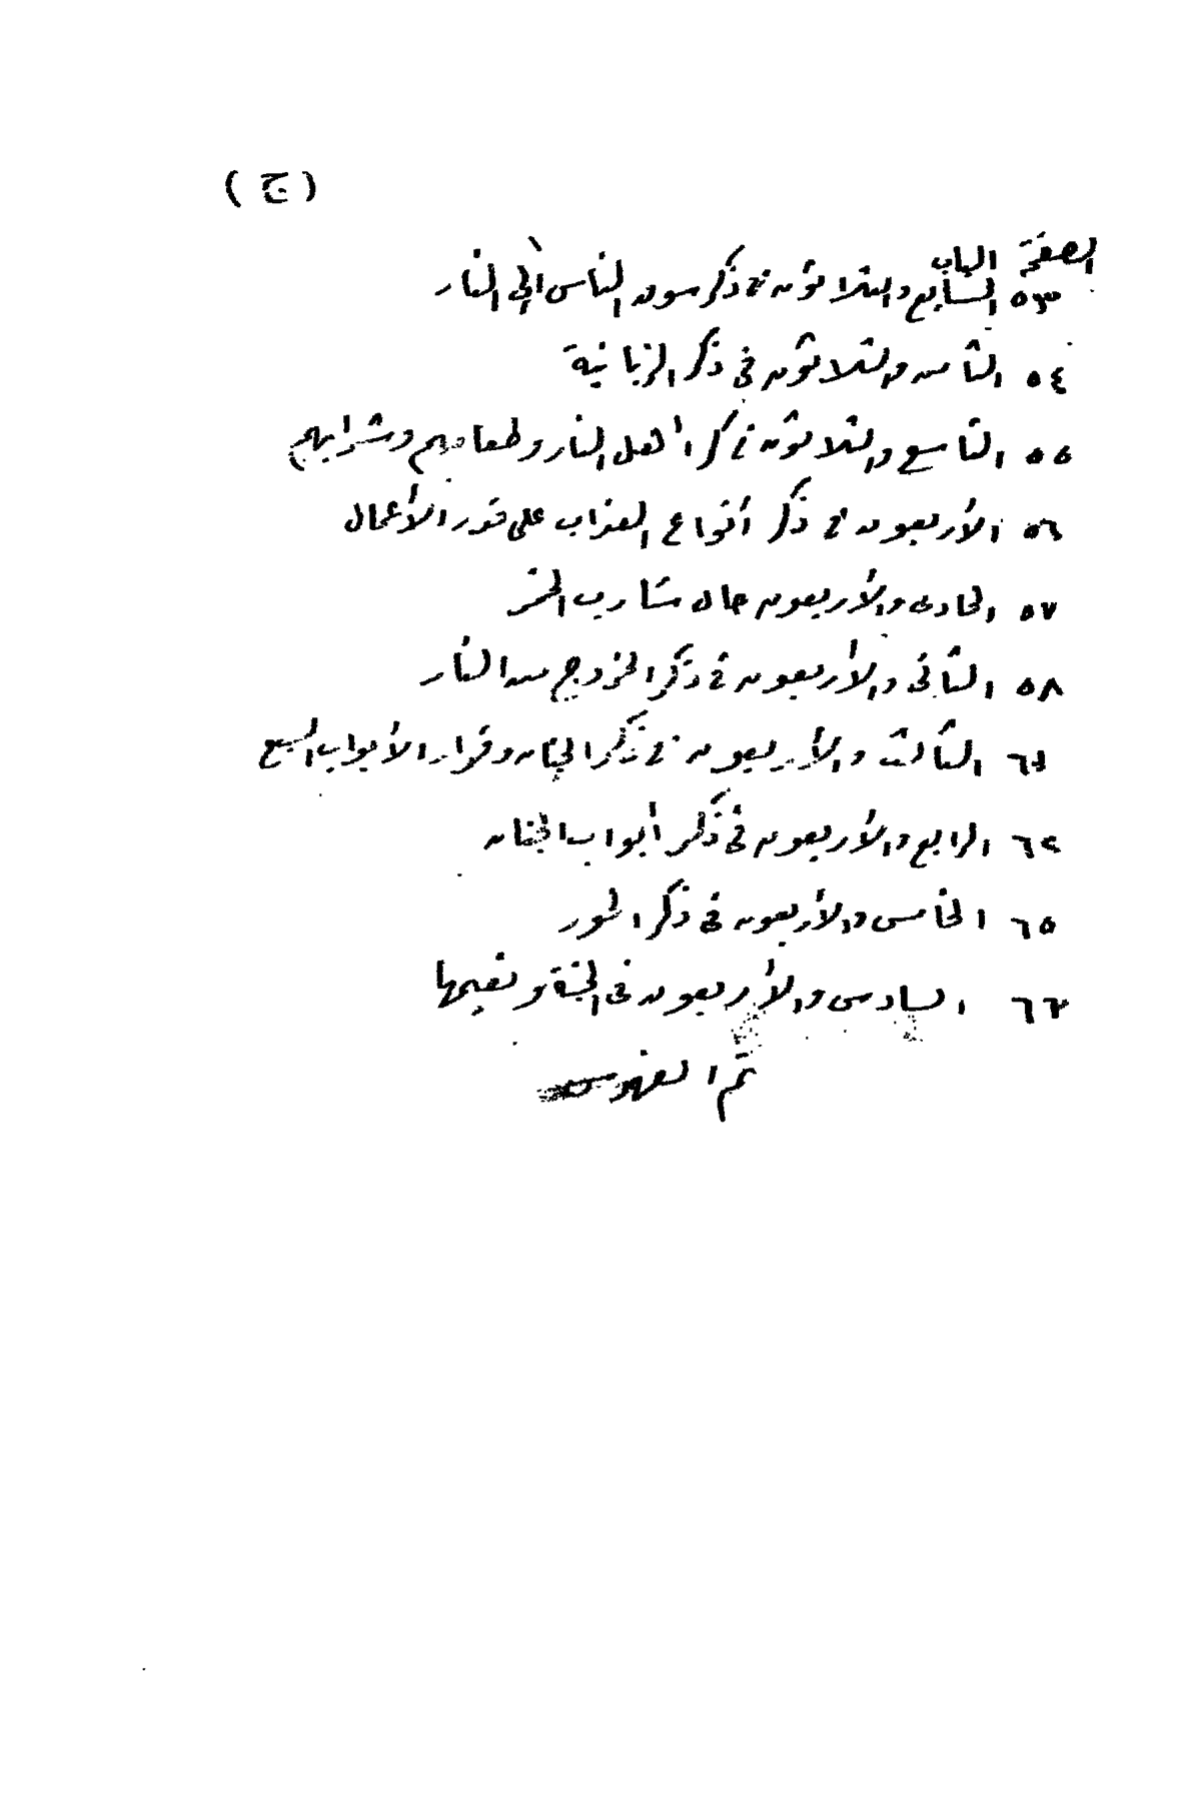 ( ج )
الصفحة الباب
٥٣ السابع والثلاثون فى ذكر سوق الناس إلى النار
٥٤ الثامن والثلاثون فى ذكر الزبانية
٥٥ التاسع والثلاثون فى ذكر أهل النار وطعامهم وشرابهم
٥٦ الأربعون فى ذكر أنواع العذاب على قدر الأعمال
٥٧ الحادى والأربعون حال شارب الخمر
٥٨ الثانى والأربعون فى ذكر الخروج من النار
٦١ الثالث والأربعون فى ذكر الجنان وقرار الأبواب السبع
٦٢ الرابع والأربعون فى ذكر أبواب الجنان
٦٥ الخامس والأربعون فى ذكر الحور
٦٣ السادس والأربعون فى الجنة ونعيمها
تم الفهرس